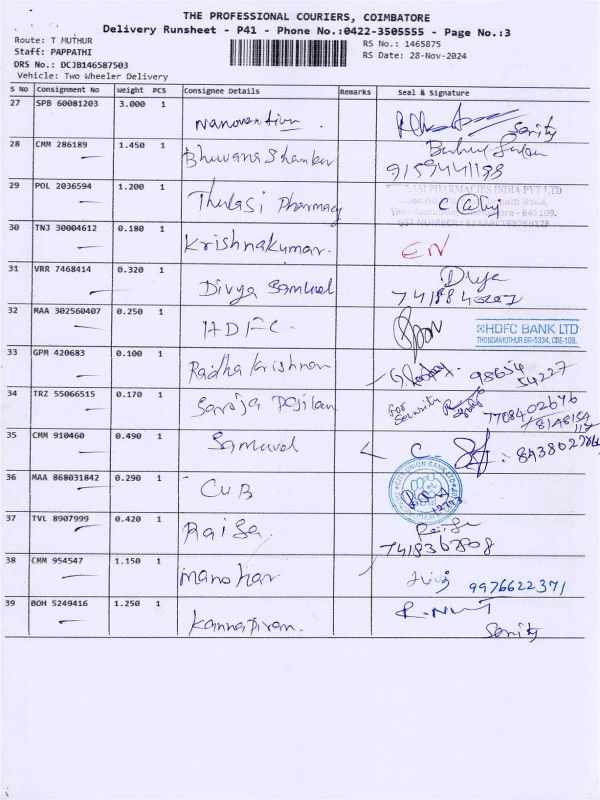 THE PROFESSIONAL COURIERS, COIMBATORE
Delivery Runsheet - P41 - Phone No.:0422-3505555 - Page No.:3
Route: T MUTHUR
RS No.: 1465875
Staff: PAPPATHI
RS Date: 28-Nov-2024
DRS No.: DCJB146587503
Vehicle: Two Wheeler Delivery
S No Consignment No Weight PCS Consignee Details Remarks Seal & Signature
27 SPB 60081203 3.000 1
Nanovention.
28 CMM 286189 1.450 1
Bhuvana Shankar
9159441198
29 POL 2036594 1.200 1
Thulasi Pharmacy
PHARMACIES INDIA PVT LTD
30 TNJ 30004612 0.180 1
Krishnakumar.
EN
31 VRR 7468414 0.320 1
Divya Samuel
Divya
32 MAA 302560407 0.250 1
HDFC
HDFC BANK LTD
THONDAMUTHUR BR-5334, CBE-109.
33 GPM 420683 0.100 1
Radha Krishnan
98654
54227
34 TRZ 55066515 0.170 1
Saroja
For Security
7708402676
35 CMM 910460 0.490 1
Samuvel
36 MAA 868031842 0.290 1
CUB
CITY UNION BANK LTD
37 TVL 8907999 0.420 1
Raisa
Raisa
38 CMM 954547 1.150 1
Manohar
9976622371
39 BOH 5249416 1.250 1
Kannapiran.